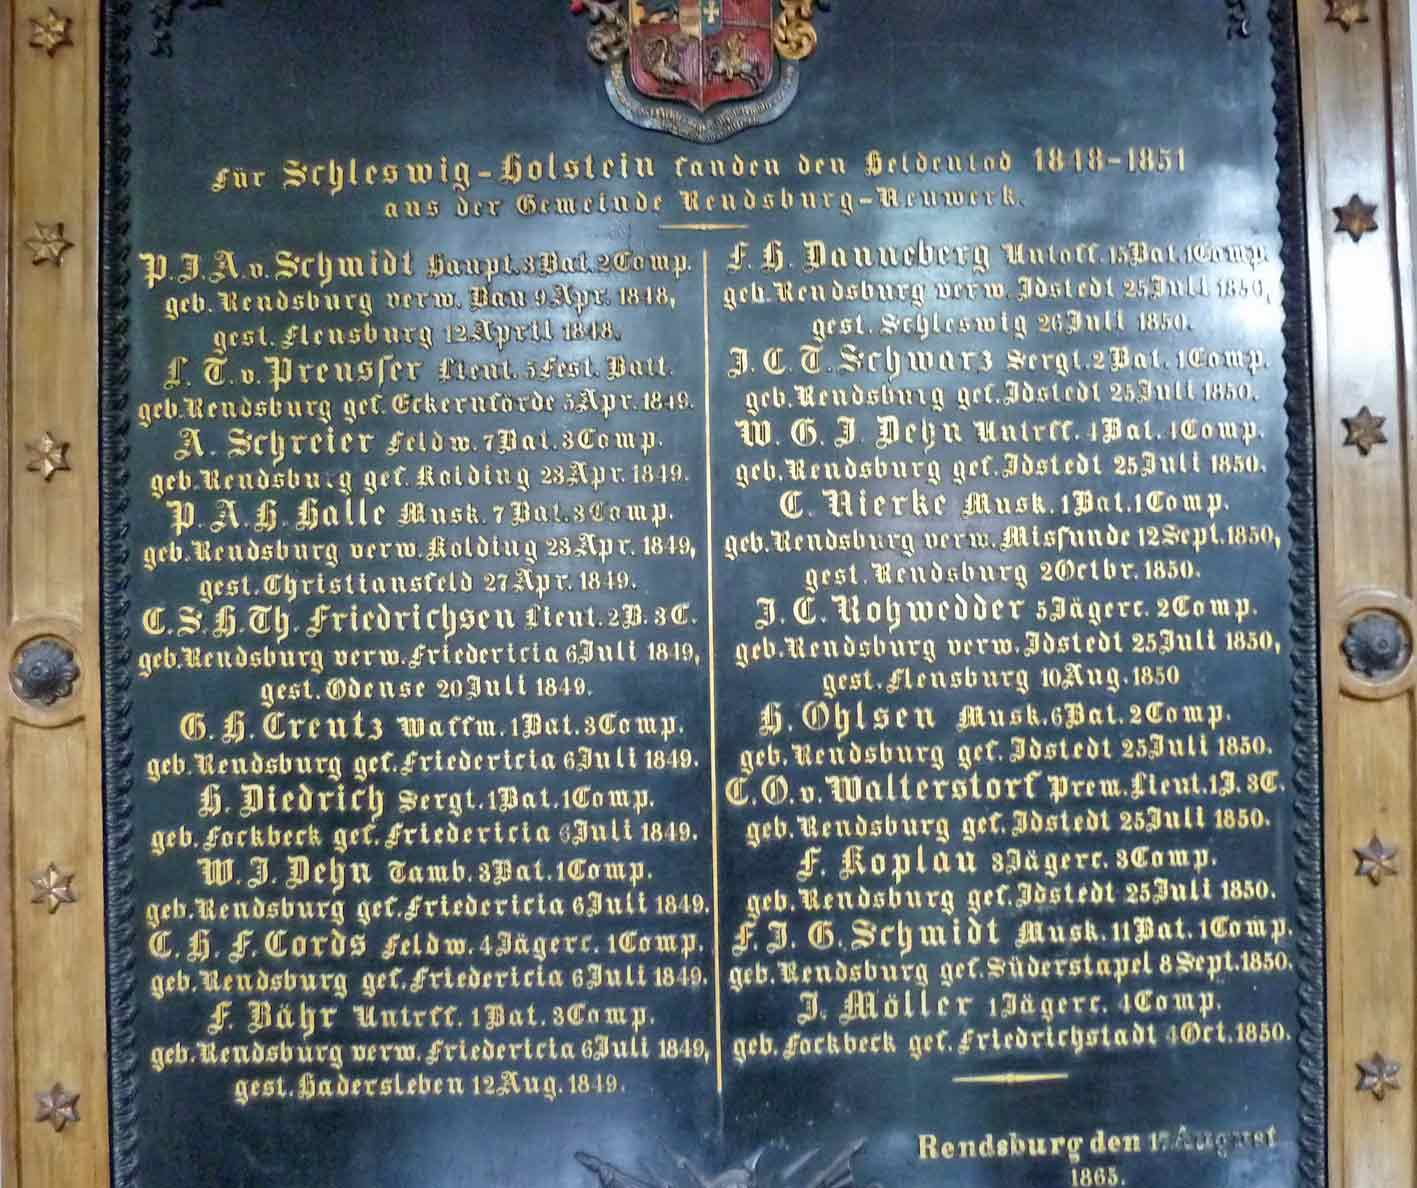 Für Schleswig-Holstein fanden den Heldentod 1848-1851
aus der Gemeinde Rendsburg-Neuwerk.
P.J.A.v.Schmidt Haupt.3Bat.2Comp.
geb.Rendsburg verw.Bau 9Apr.1848,
gest.Flensburg 12April 1848.
L.T.v.Preusser Lieut.5Fest.Batt.
geb.Rendsburg gef.Eckernförde 5Apr.1849.
A.Schreier Feldw.7Bat.3Comp.
geb.Rendsburg gef.Kolding 23Apr.1849.
P.A.H.Halle Musk.7Bat.3Comp.
geb.Rendsburg verw.Kolding 23Apr.1849,
gest.Christiansfeld 27Apr.1849.
C.S.H.Th.Friedrichsen Lieut.2B.3C.
geb.Rendsburg verw.Friedericia 6Juli 1849,
gest.Odense 20Juli 1849.
G.H.Creutz Waffm.1Bat.3Comp.
geb.Rendsburg gef.Friedericia 6Juli 1849.
H.Diedrich Sergt.1Bat.1Comp.
geb.Fockbeck gef.Friedericia 6Juli 1849.
W.J.Dehn Tamb.3Bat.1Comp.
geb.Rendsburg gef.Friedericia 6Juli 1849.
C.H.F.Cords Feldw.4Jägerc.1Comp.
geb.Rendsburg gef.Friedericia 6Juli 1849.
F.Bähr Untrff.1Bat.3Comp.
geb.Rendsburg verw.Friedericia 6Juli 1849,
gest.Hadersleben 12Aug.1849.
F.H.Danneberg Untoff.15Bat.1Comp.
geb.Rendsburg verw.Idstedt 25Juli 1850,
gest.Schleswig 26Juli 1850.
J.C.T.Schwarz Sergt.2Bat.1Comp.
geb.Rendsburg gef.Idstedt 25Juli 1850.
W.G.J.Dehn Untrff.4Bat.4Comp.
geb.Rendsburg gef.Idstedt 25Juli 1850.
C.Nierke Musk.1Bat.1Comp.
geb.Rendsburg verw.Missunde 12Sept.1850,
gest.Rendsburg 2Octbr.1850.
J.C.Rohwedder 5Jägerc.2Comp.
geb.Rendsburg verw.Idstedt 25Juli 1850,
gest.Flensburg 10Aug.1850
H.Ohlsen Musk.6Bat.2Comp.
geb.Rendsburg gef.Idstedt 25Juli 1850.
C.O.v.Walterstorf Prem.Lieut.1J.3C.
geb.Rendsburg gef.Idstedt 25Juli 1850.
F.Koplau 3Jägerc.3Comp.
geb.Rendsburg gef.Idstedt 25Juli 1850.
F.J.G.Schmidt Musk.11Bat.1Comp.
geb.Rendsburg gef.Süderstapel 8Sept.1850.
J.Möller 1Jägerc.4Comp.
geb.Fockbeck gef.Friedrichstadt 4Oct.1850.
Rendsburg den 17 August
1865.